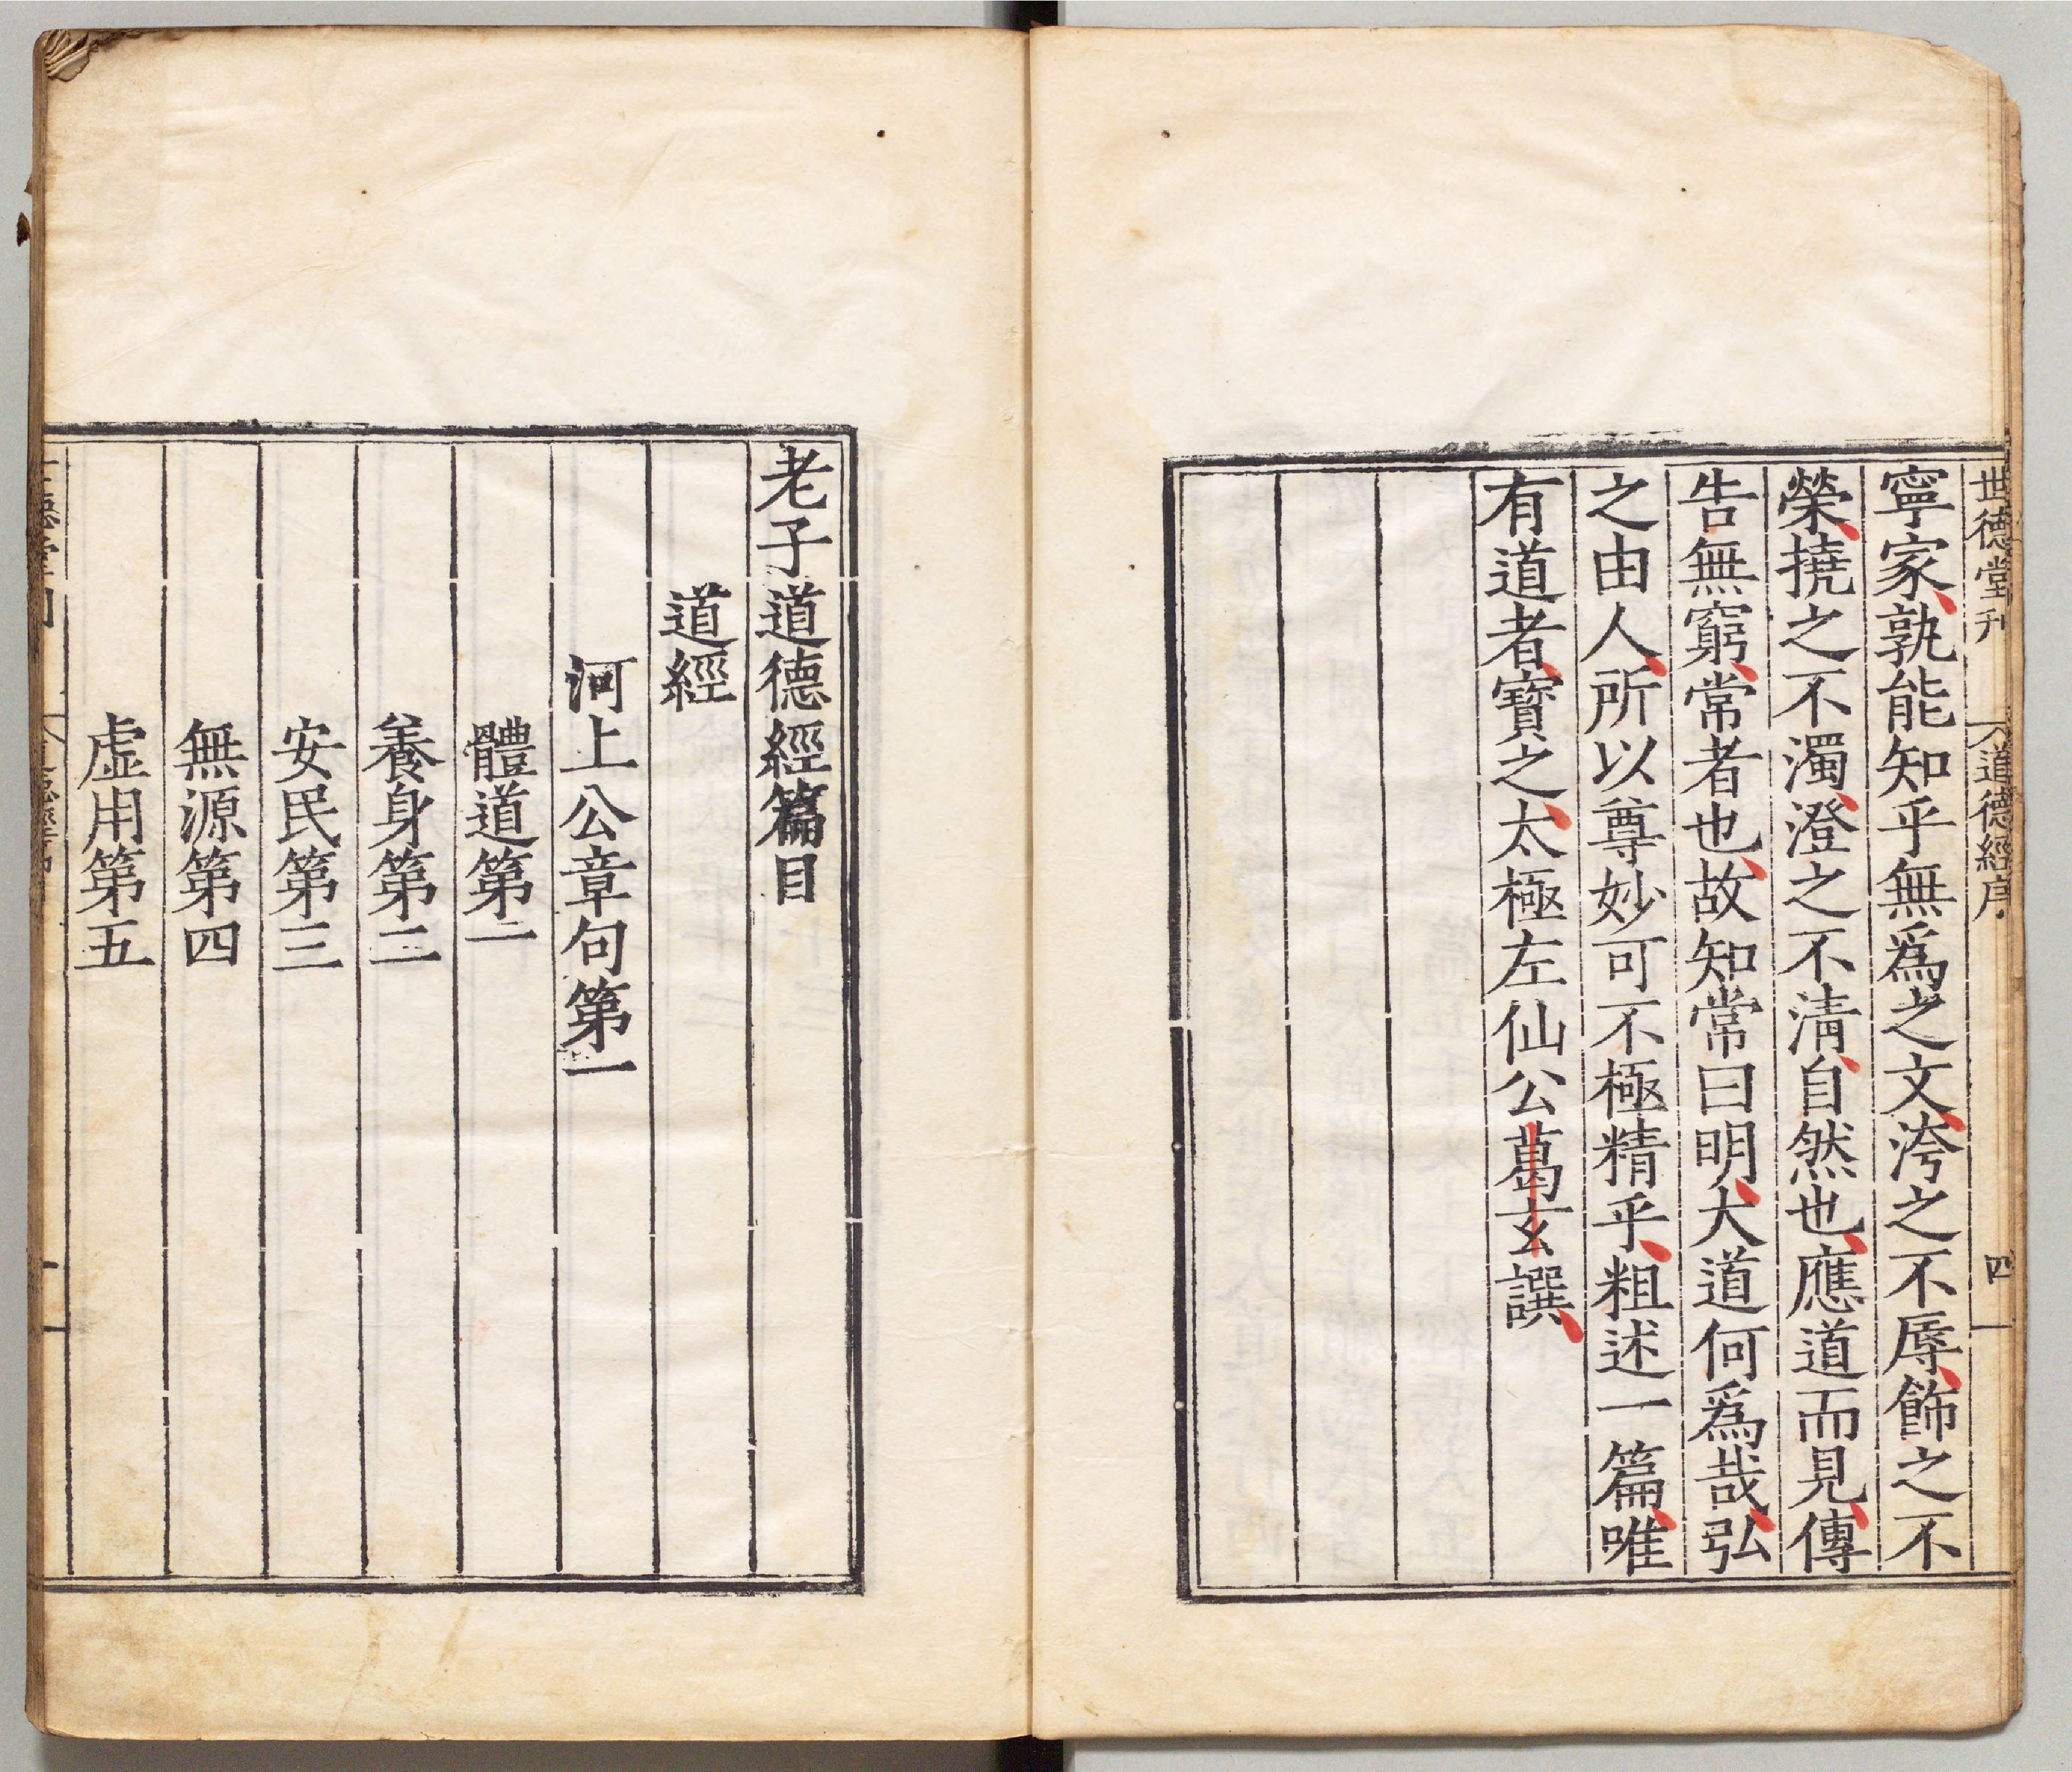 世德堂刊 道德經序 四
寧家、孰能知乎無爲之文、洿之不辱、飾之不
榮、撓之不濁、澄之不清、自然也、應道而見、傳
告無窮、常者也、故知常曰明、大道何爲哉、弘
之由人、所以尊妙可不極精乎、粗述一篇、唯
有道者、寶之、太極左仙公葛玄譔、
老子道德經篇目
道經
河上公章句第一
體道第一
養身第二
安民第三
無源第四
虛用第五